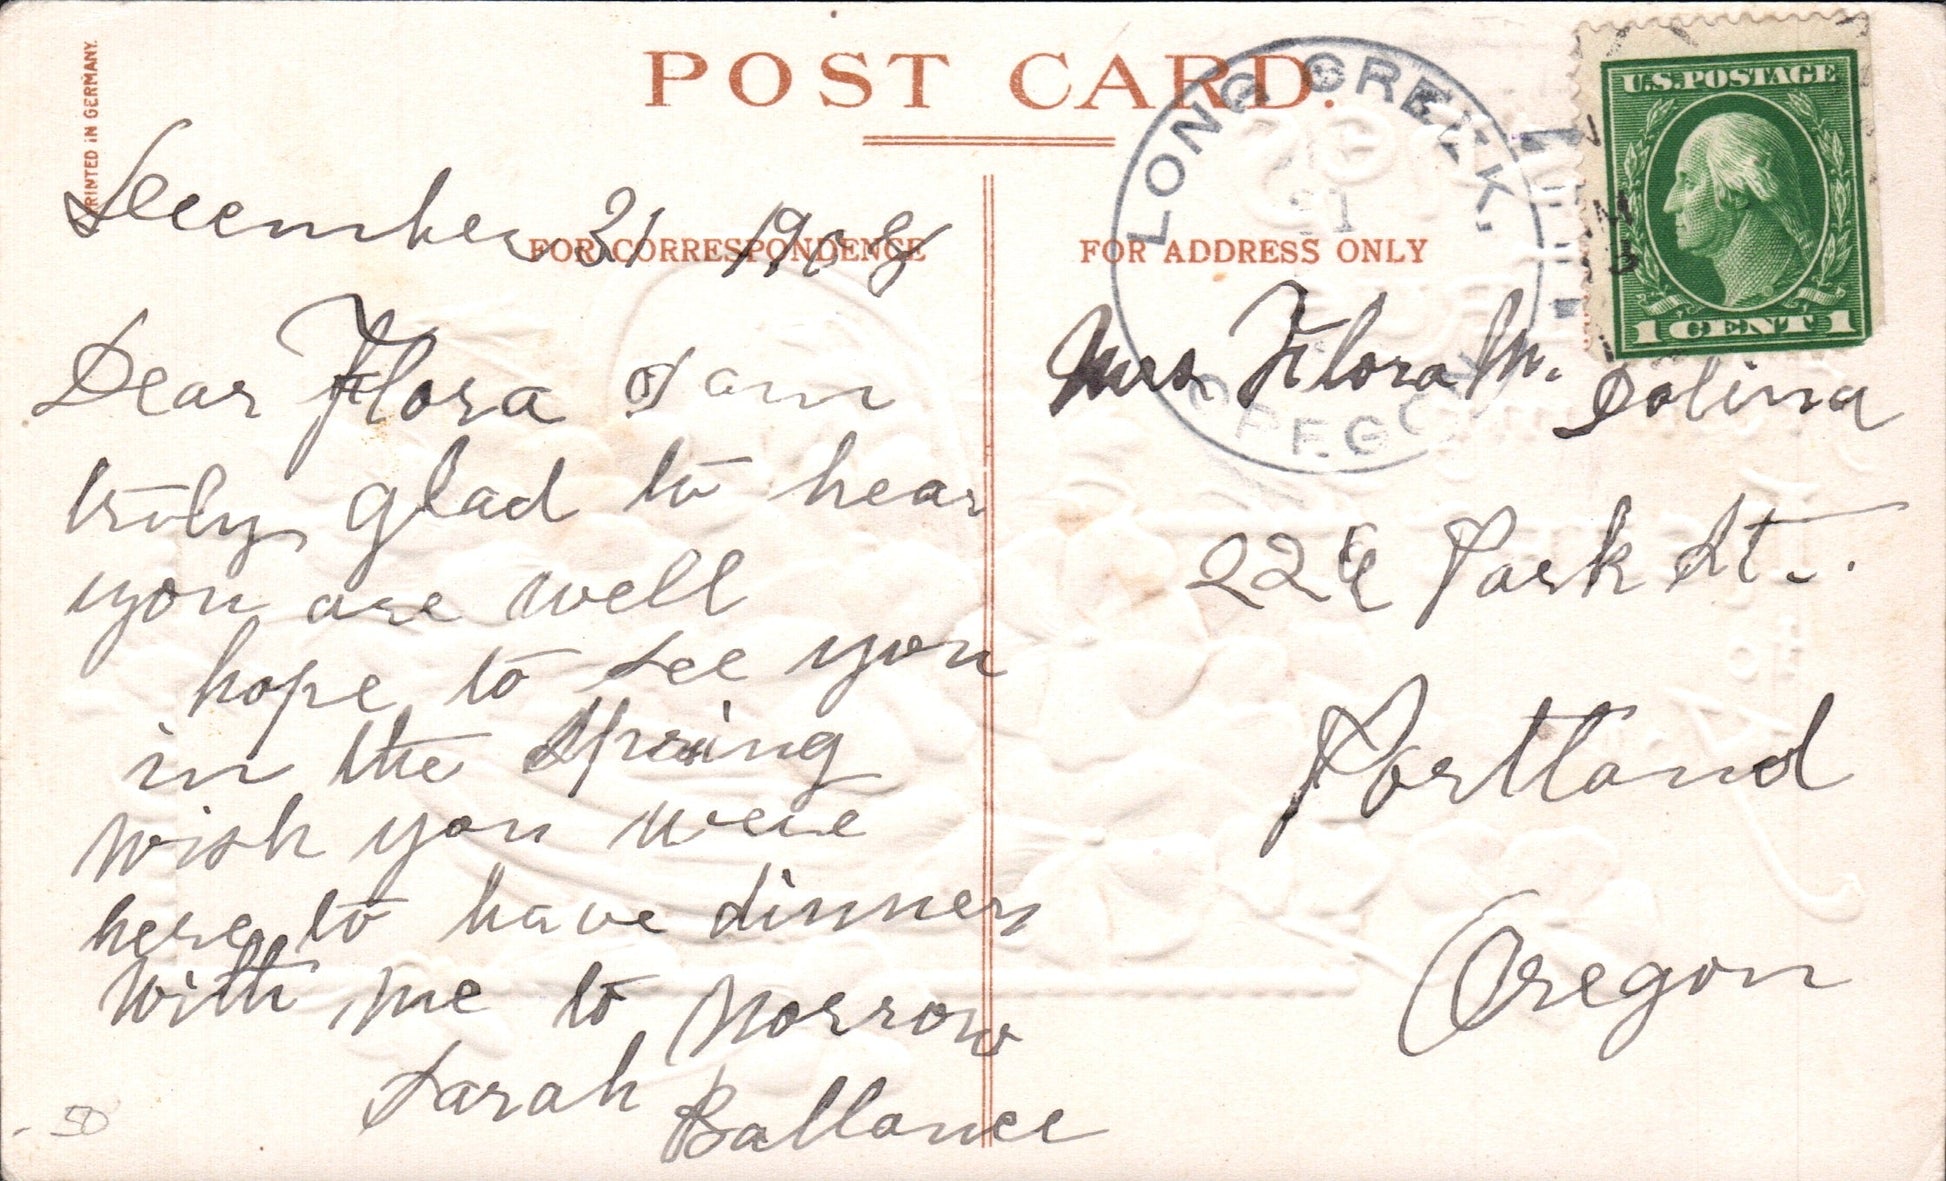 PRINTED IN GERMANY.
POST CARD.
FOR CORRESPONDENCE
FOR ADDRESS ONLY
LONG CREEK,
31
OREGON
U.S. POSTAGE
1 CENT 1
December 31 1908
Dear Flora I am
truly glad to hear
you are well
hope to see you
in the Spring
wish you were
here to have dinner
with me to morrow
Sarah Ballance
Mrs Flora M. Solina
226 Park St.
Portland
Oregon
50